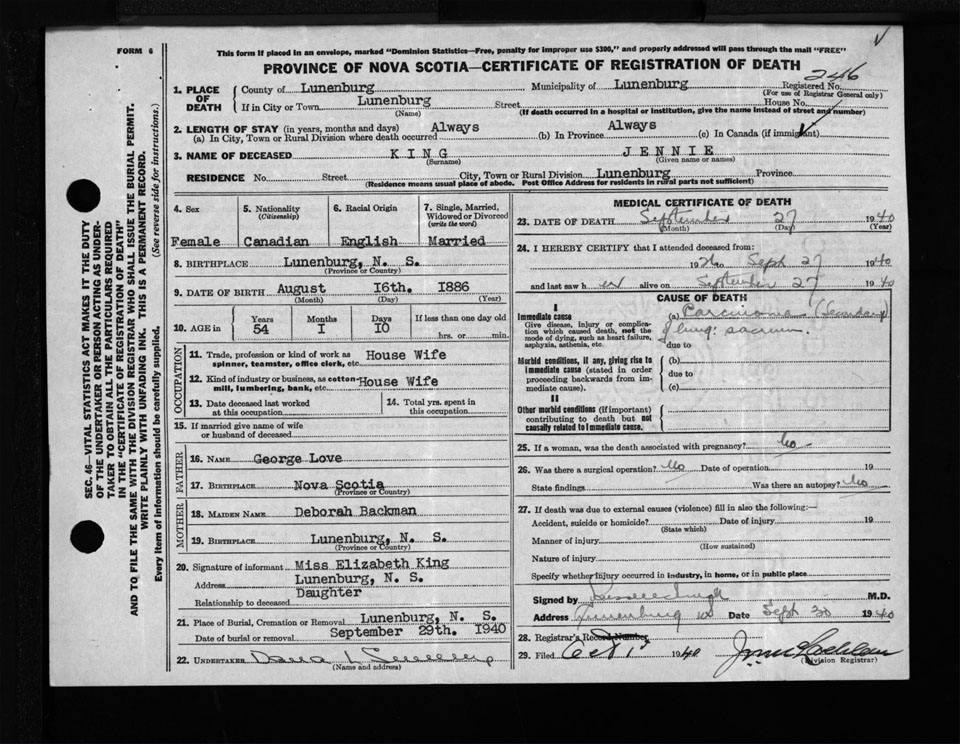 FORM 6
This form if placed in an envelope, marked "Dominion Statistics—Free, penalty for improper use $300," and properly addressed will pass through the mail "FREE"
PROVINCE OF NOVA SCOTIA—CERTIFICATE OF REGISTRATION OF DEATH
246
1. PLACE OF DEATH
County of Lunenburg Municipality of Lunenburg Registered No.
(For use of Registrar General only)
If in City or Town Lunenburg Street House No.
(Name) (If death occurred in a hospital or institution, give the name instead of street and number)
2. LENGTH OF STAY (in years, months and days) Always Always
(a) In City, Town or Rural Division where death occurred (b) In Province (c) In Canada (if immigrant)
3. NAME OF DECEASED KING JENNIE
(Surname) (Given name or names)
RESIDENCE No. Street City, Town or Rural Division Lunenburg Province
(Residence means usual place of abode. Post Office Address for residents in rural parts not sufficient)
4. Sex 5. Nationality (Citizenship) 6. Racial Origin 7. Single, Married, Widowed or Divorced (write the word)
Female Canadian English Married
8. BIRTHPLACE Lunenburg, N. S.
(Province or Country)
9. DATE OF BIRTH August 16th. 1886
(Month) (Day) (Year)
10. AGE in Years Months Days If less than one day old
54 1 10 hrs. or min.
OCCUPATION
11. Trade, profession or kind of work as spinner, teamster, office clerk, etc. House Wife
12. Kind of industry or business, as cotton-mill, lumbering, bank, etc. House Wife
13. Date deceased last worked at this occupation 14. Total yrs. spent in this occupation
15. If married give name of wife or husband of deceased
FATHER
16. NAME George Love
17. BIRTHPLACE Nova Scotia
(Province or Country)
MOTHER
18. MAIDEN NAME Deborah Backman
19. BIRTHPLACE Lunenburg, N. S.
(Province or Country)
20. Signature of informant Miss Elizabeth King
Address Lunenburg, N. S.
Relationship to deceased Daughter
21. Place of Burial, Cremation or Removal Lunenburg, N. S.
Date of burial or removal September 29th. 1940
22. UNDERTAKER
(Name and address)
MEDICAL CERTIFICATE OF DEATH
23. DATE OF DEATH September 27 1940
(Month) (Day) (Year)
24. I HEREBY CERTIFY that I attended deceased from:
1926 to Sept 27 1940
and last saw her alive on September 27 1940
CAUSE OF DEATH
I
Immediate cause (a) Carcinoma (Secondary)
Give disease, injury or complication which caused death, not the mode of dying, such as heart failure, asphyxia, asthenia, etc.
of lung: sacrum.
due to
Morbid conditions, if any, giving rise to immediate cause (stated in order proceeding backwards from immediate cause).
(b)
due to
(c)
II
Other morbid conditions (if important) contributing to death but not causally related to immediate cause.
25. If a woman, was the death associated with pregnancy? No
26. Was there a surgical operation? No Date of operation 19
State findings Was there an autopsy? No
27. If death was due to external causes (violence) fill in also the following:—
Accident, suicide or homicide? Date of injury 19
(State which)
Manner of injury
(How sustained)
Nature of injury
Specify whether injury occurred in industry, in home, or in public place
Signed by M.D.
Address Lunenburg NS Date Sept 30 1940
28. Registrar's Record Number
29. Filed Oct 1st 1940
(Division Registrar)
SEC. 46—VITAL STATISTICS ACT MAKES IT THE DUTY
OF THE UNDERTAKER OR PERSON ACTING AS UNDER-
TAKER TO OBTAIN ALL THE PARTICULARS REQUIRED
IN THE "CERTIFICATE OF REGISTRATION OF DEATH"
AND TO FILE THE SAME WITH THE DIVISION REGISTRAR WHO SHALL ISSUE THE BURIAL PERMIT.
WRITE PLAINLY WITH UNFADING INK. THIS IS A PERMANENT RECORD.
Every item of information should be carefully supplied. (See reverse side for instructions.)